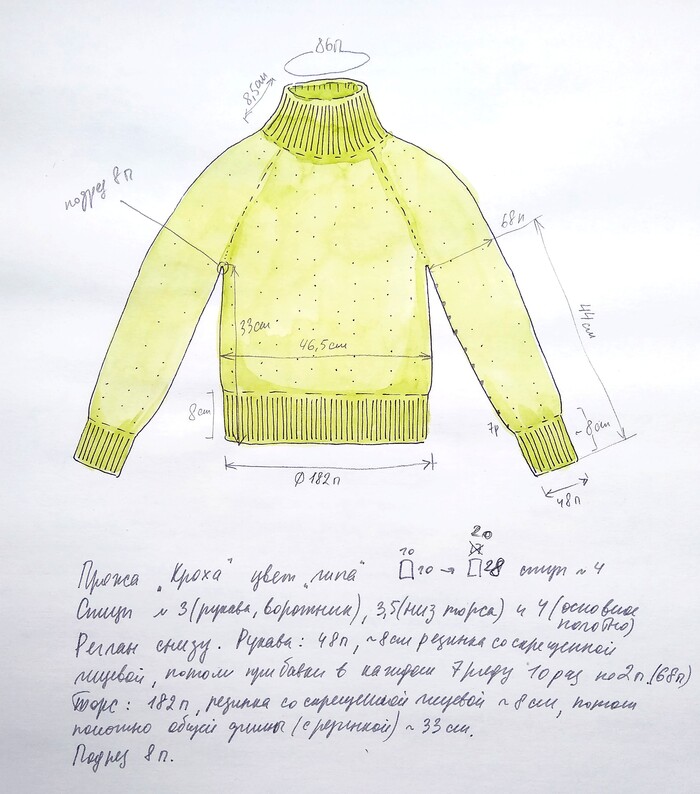 86п
8,5см
подрез 8п
68п
44см
33см
46,5см
8см
7р
~8см
⌀ 182п
48п
20
Пряжа „Кроха" цвет „липа" 10 10 → 28 спиц ~ 4
Спицы № 3 (рукава, воротник), 3,5 (низ торса) и 4 (основное
полотно)
Реглан снизу. Рукава: 48п, ~8см резинка со скрещенной
лицевой, потом прибавки в каждом 7 ряду 10 раз по 2п. (68п)
Торс: 182п, резинка со скрещенной лицевой ~ 8см, потом
полотно общей длины (с резинкой) ~ 33 см.
Подрез 8п.